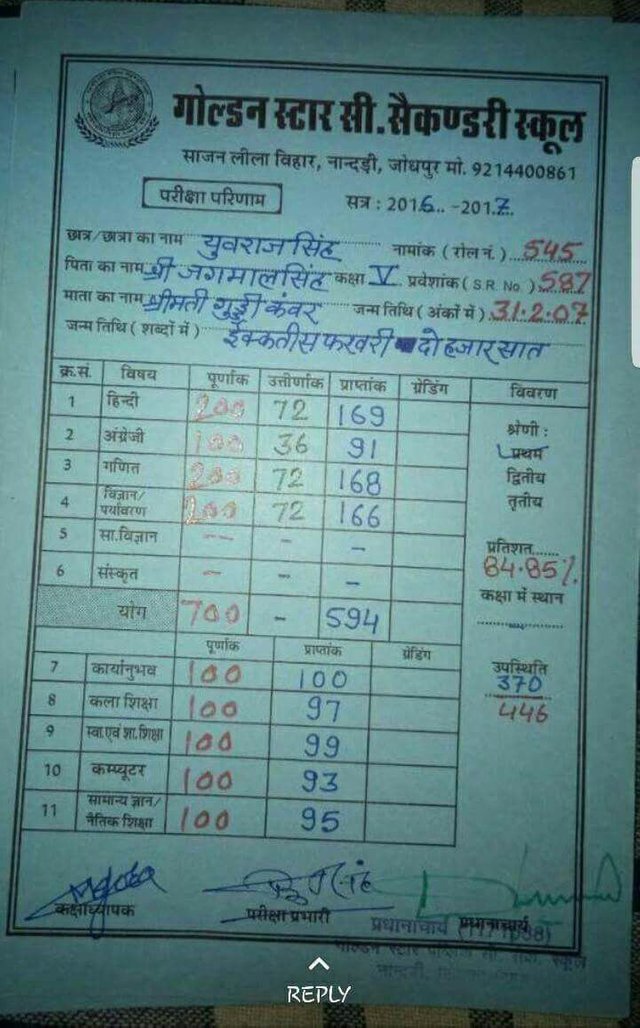 गोल्डन स्टार सी. सैकण्डरी स्कूल
साजन लीला विहार, नान्दड़ी, जोधपुर मो. 9214400861
परीक्षा परिणाम सत्र : 2016.. -2017.
छात्र/छात्रा का नाम युवराज सिंह नामांक (रोल नं.) 545
पिता का नाम श्री जगमालसिंह कक्षा V प्रवेशांक (S.R. No.) 587
माता का नाम श्रीमती गुड्डी कंवर जन्म तिथि (अंकों में) 31.2.07
जन्म तिथि (शब्दों में) ईक्कतीस फरवरी दो हजार सात
क्र.सं. विषय पूर्णांक उत्तीर्णांक प्राप्तांक ग्रेडिंग विवरण
1 हिन्दी 200 72 169
2 अंग्रेजी 100 36 91
3 गणित 200 72 168
4 विज्ञान/पर्यावरण 200 72 166
5 सा.विज्ञान -- - -
6 संस्कृत - - -
योग 700 - 594
श्रेणी :
प्रथम
द्वितीय
तृतीय
प्रतिशत......
84.85%
कक्षा में स्थान
उपस्थिति
370
446
पूर्णांक प्राप्तांक ग्रेडिंग
7 कार्यानुभव 100 100
8 कला शिक्षा 100 97
9 स्वा.एवं शा.शिक्षा 100 99
10 कम्प्यूटर 100 93
11 सामान्य ज्ञान/नैतिक शिक्षा 100 95
कक्षाध्यापक परीक्षा प्रभारी प्रधानाचार्य
प्रधानाचार्य
गोल्डन स्टार
स्कूल
REPLY